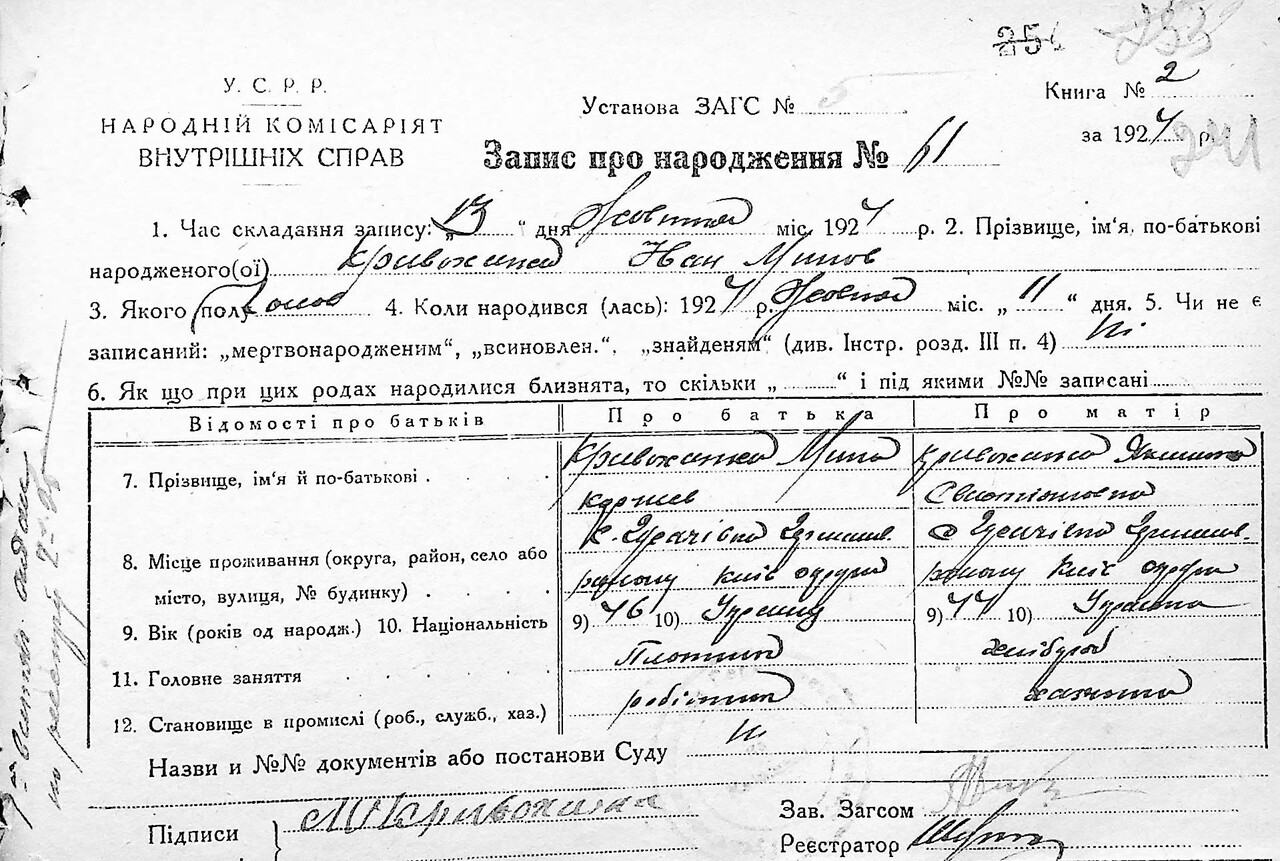 254 233
У. С. Р. Р.
НАРОДНІЙ КОМІСАРІЯТ
ВНУТРІШНІХ СПРАВ
Установа ЗАГС №
Книга № 2
за 1927 р. 241
Запис про народження № 61
1. Час складання запису: „13“ дня Жовтня міс. 1927 р. 2. Прізвище, ім'я, по-батькові
народженого(ої) Кривохижа Іван Минов
3. Якого полу 4. Коли народився (лась): 1927 р. Жовтня міс. „11“ дня. 5. Чи не є
записаний: „мертвонародженим“, „всиновлен.“, „знайденям“ (див. Інстр. розд. III п. 4) Ні
6. Як що при цих родах народилися близнята, то скільки „ “ і під якими №№ записані
Відомості про батьків Про батька Про матір
7. Прізвище, ім'я й по-батькові Кривохижа Мина Кривохижа
8. Місце проживання (округа, район, село або
місто, вулиця, № будинку)
району Київ округи району Київ округи
9. Вік (років од народж.) 10. Національність 9) 46 10) Украинц 9) 44 10) Украинка
11. Головне заняття Плотник хлібороб
12. Становище в промислі (роб., служб., хаз.) робітник
Назви и №№ документів або постанови Суду Ні
Підписи М Кривохижа
Зав. Загсом
Реєстратор